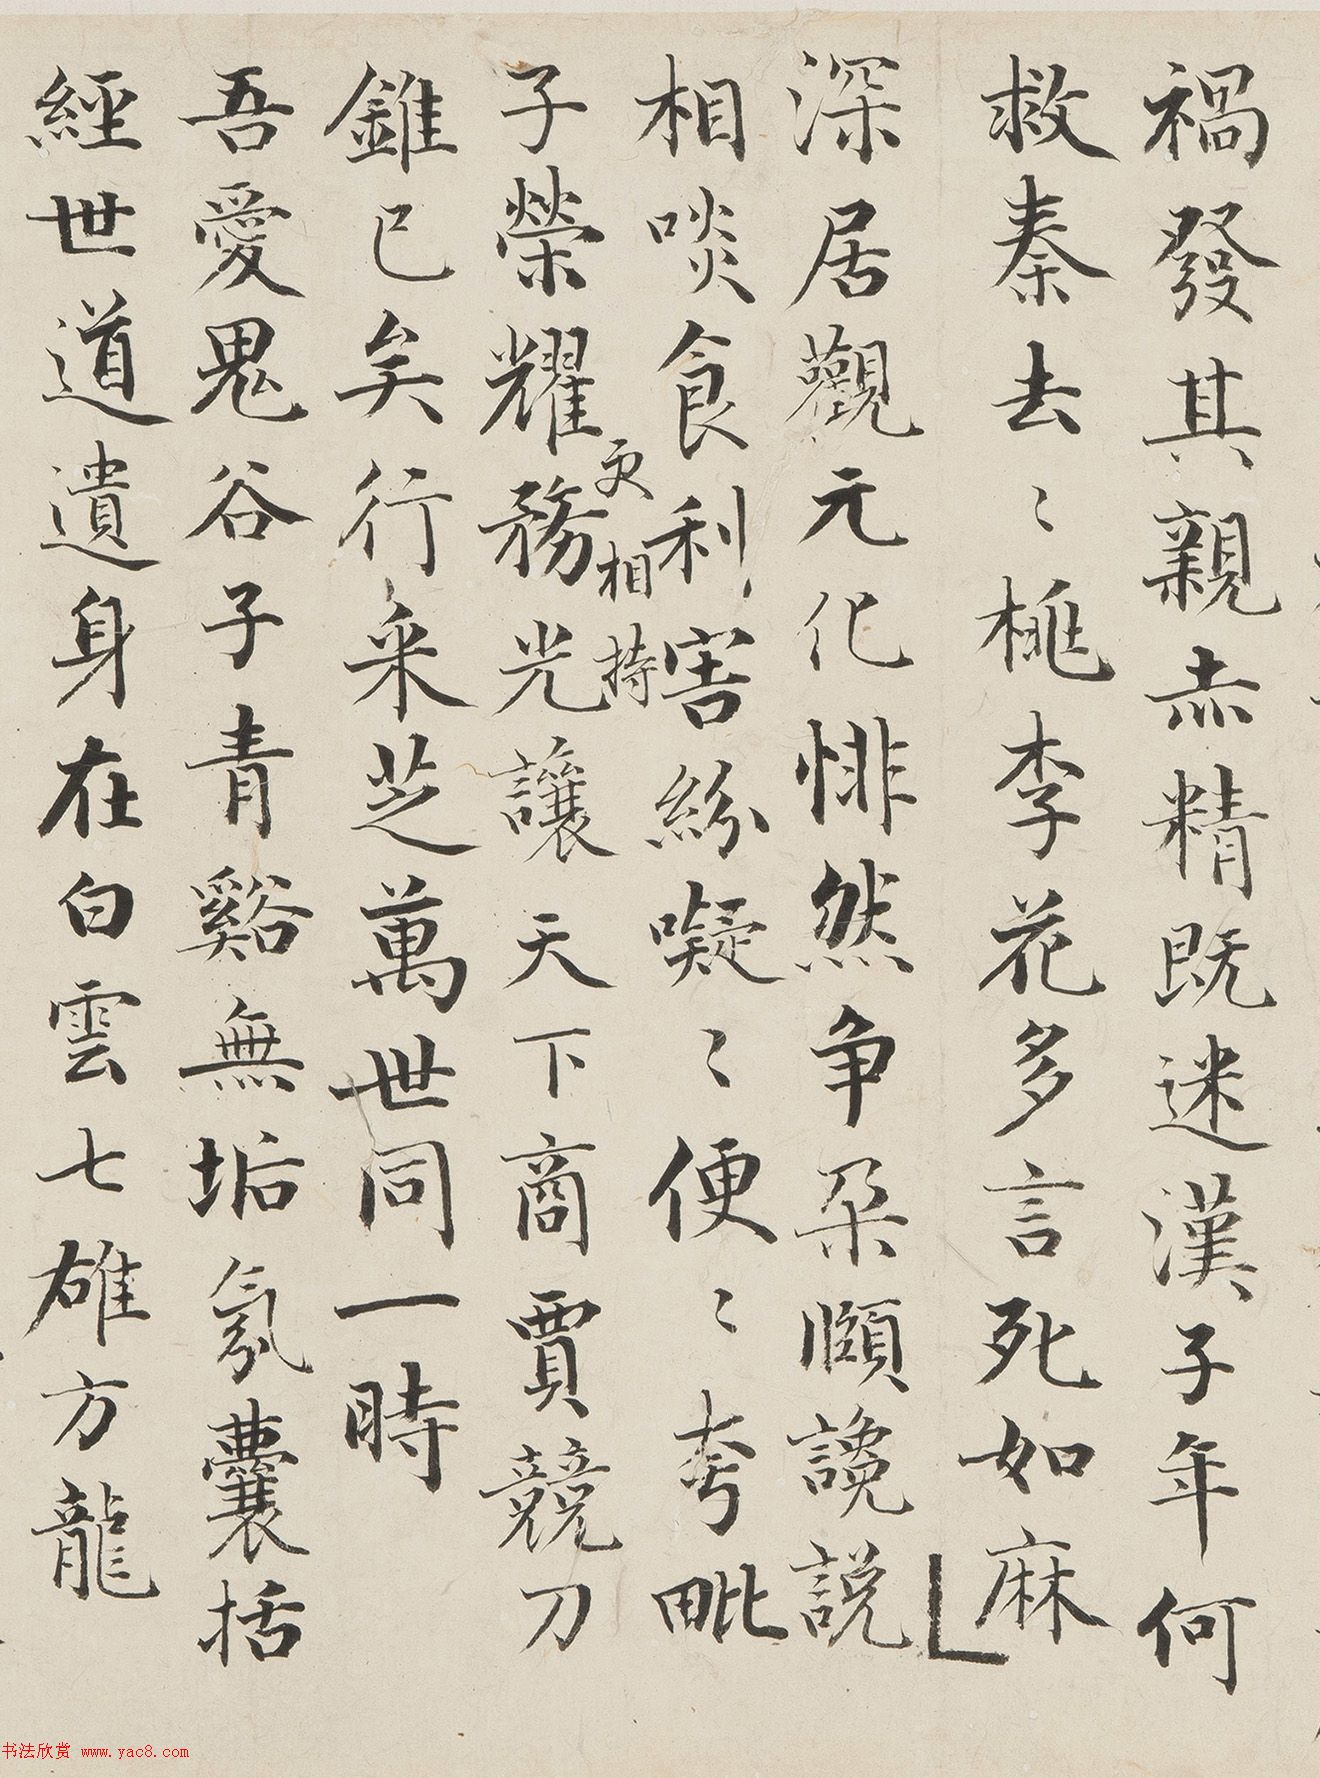 禍發其親赤精既迷漢子年何
救秦去〻桃李花多言死如麻
深居觀元化悱然争朶頤讒説
相啖食利害紛㘈〻便〻夸毗
子榮耀更相持務光讓天下商賈競刀
錐已矣行采芝萬世同一時
吾愛鬼谷子青谿無垢氛囊括
經世道遺身在白雲七雄方龍
书法欣赏 www.yac8.com